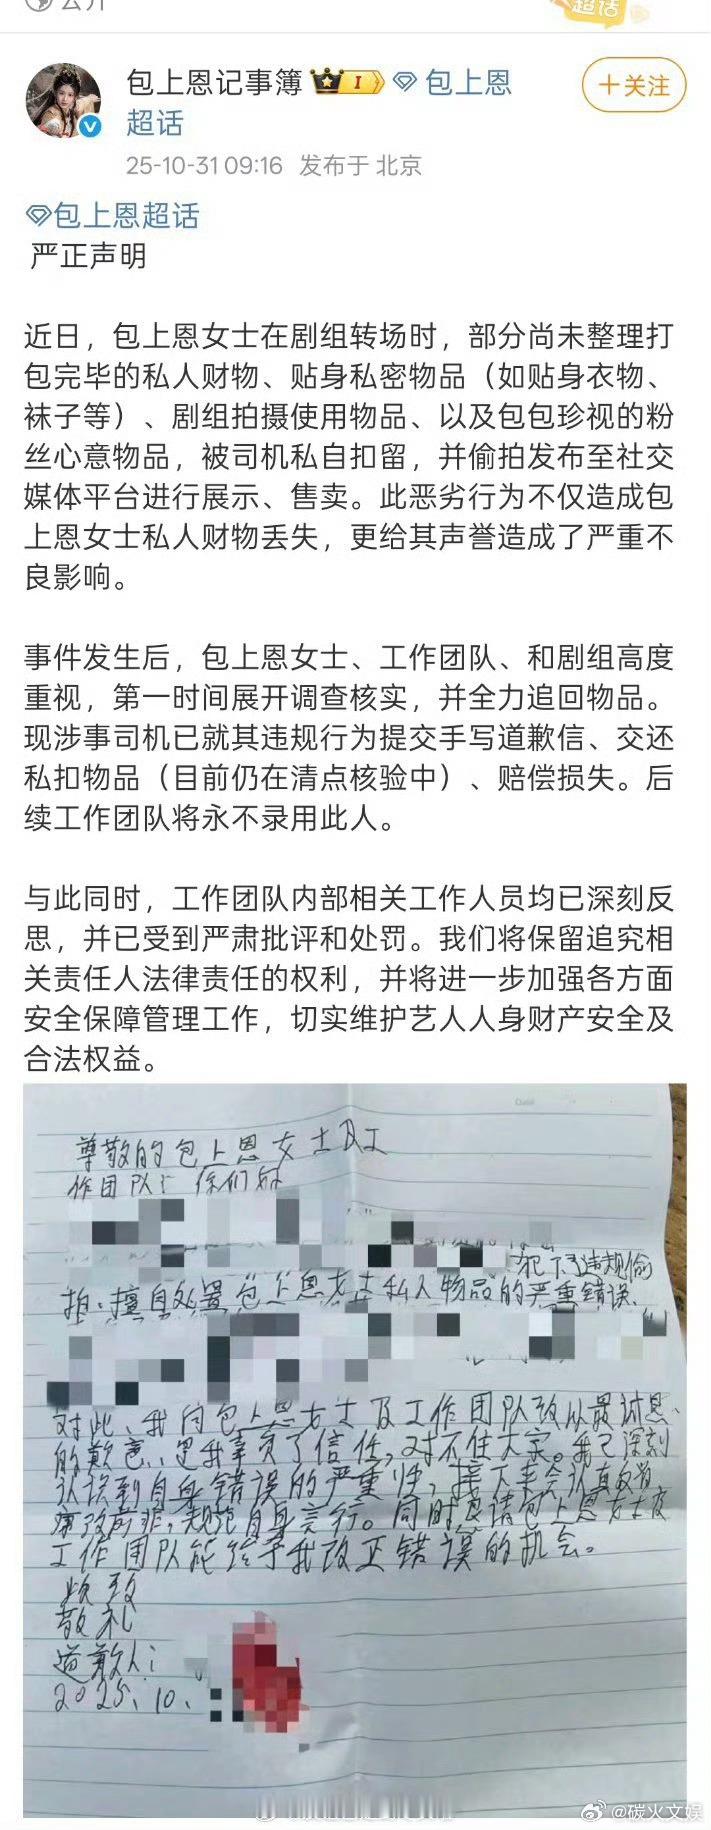 公开
超话
包上恩记事簿 I 包上恩
超话
十关注
25-10-31 09:16 发布于 北京
包上恩超话
严正声明
近日，包上恩女士在剧组转场时，部分尚未整理打
包完毕的私人财物、贴身私密物品（如贴身衣物、
袜子等）、剧组拍摄使用物品、以及包包珍视的粉
丝心意物品，被司机私自扣留，并偷拍发布至社交
媒体平台进行展示、售卖。此恶劣行为不仅造成包
上恩女士私人财物丢失，更给其声誉造成了严重不
良影响。
事件发生后，包上恩女士、工作团队、和剧组高度
重视，第一时间展开调查核实，并全力追回物品。
现涉事司机已就其违规行为提交手写道歉信、交还
私扣物品（目前仍在清点核验中）、赔偿损失。后
续工作团队将永不录用此人。
与此同时，工作团队内部相关工作人员均已深刻反
思，并已受到严肃批评和处罚。我们将保留追究相
关责任人法律责任的权利，并将进一步加强各方面
安全保障管理工作，切实维护艺人人身财产安全及
合法权益。
尊敬的包上恩女士及工
作团队：你们好
犯下了违规偷
拍、擅自处置包上恩女士私人物品的严重错误、
对此、我向包上恩女士及工作团队致以最诚恳、
的歉意、是我辜负了信任，对不住大家。我已深刻
认识到自身错误的严重性，接下来会认真反省
痛改前非，规范自身言行。同时恳请包上恩女士及
工作团队能给予我改正错误的机会。
此致
敬礼
道歉人：
2025.10.
@碳火文娱